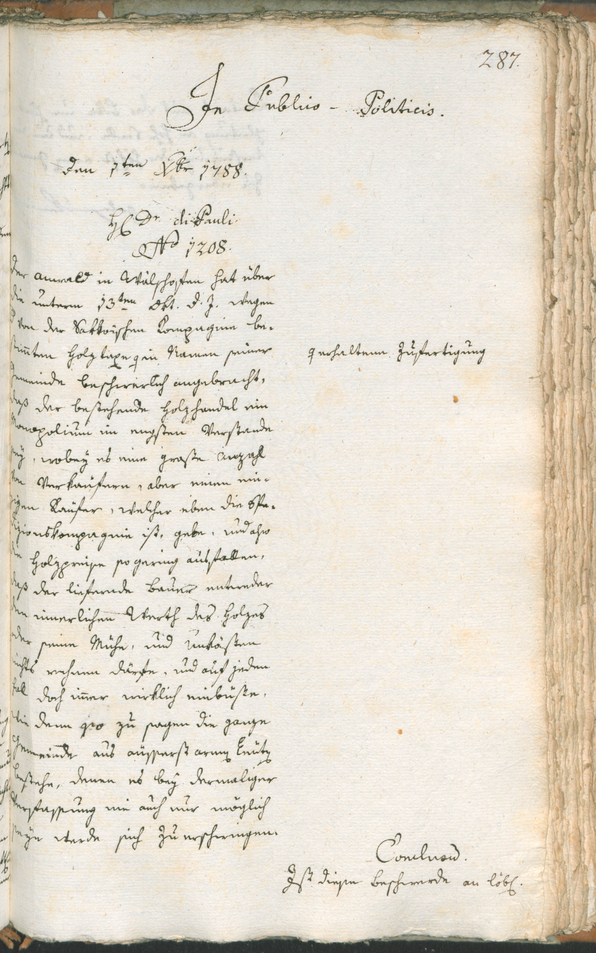 287.
In Publico-Politicis.
Den 7ten Xbr 1788.
H Dr. di Pauli
No 1208.
Der Anwald in Wälschofen hat über
die unterm 13ten Okt. d. J. wegen
von der Kompagnie be-
stimmten Holztaxe q in Namen seiner
Gemeinde beschwerlich angebracht,
daß der bestehende Holzhandel ein
Monopolium im engsten Verstande
sey, wobey es eine große Anzahl
von Verkäufern, aber einen ein-
zigen Käufer, welcher eben die Spe-
ditionskompagnie ist, gebe, und also
die Holzpreise so gering ausfallen,
daß der liefernde Bauer entweder
den innerlichen Werth des Holzes
oder seine Mühe, und Unkösten
nichts rechnen dürfe, und auf jeden
Fall doch immer wirklich einbüße,
denn so zu sagen die ganze
Gemeinde aus äusserst armen Leuten
bestehe, denen es bey dermaliger
Verfassung nie auch nur möglich
seyn werde sich zu erschwingen.
q erhaltene Zufertigung
Conclusum.
Ist diese Beschwerde an löbl.